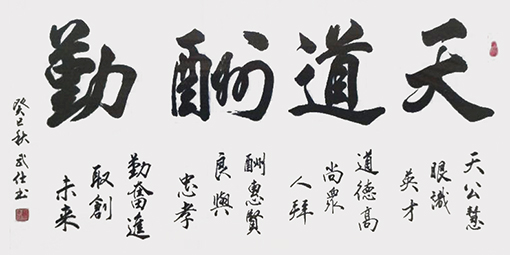 天道酬勤
天公慧
眼識
英才
道德高
尚眾
人拜
酬惠賢
良與
忠孝
勤奮進
取創
未来
癸巳秋武仕书